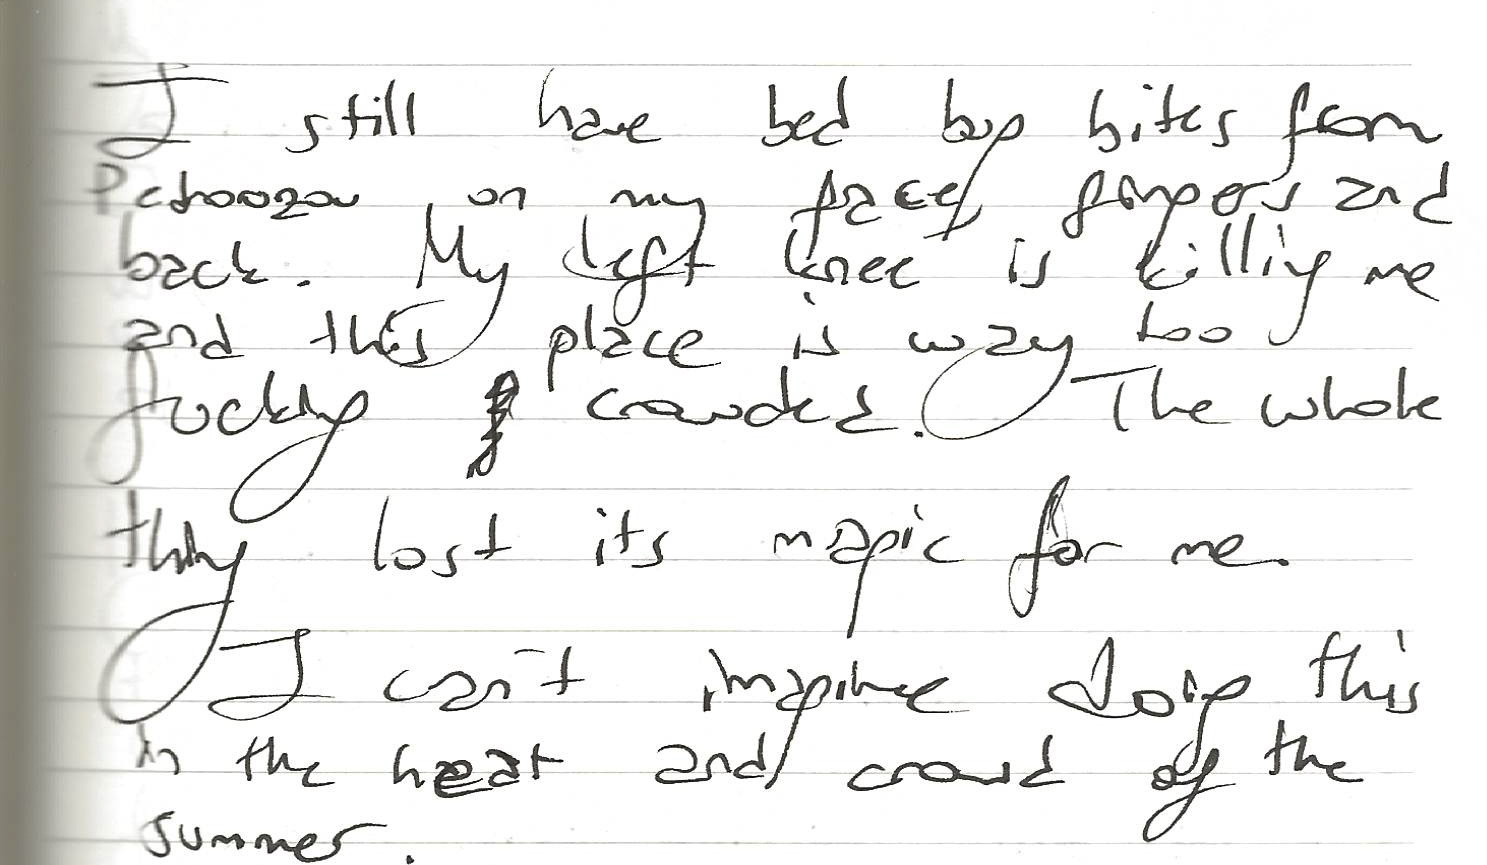 I still have bed bug bites from
on my face, fingers and
back. My left knee is killing me
and this place is way too
fucking crowded. The whole
thing lost its magic for me.
I can't imagine doing this
in the heat and crowd of the
summer.